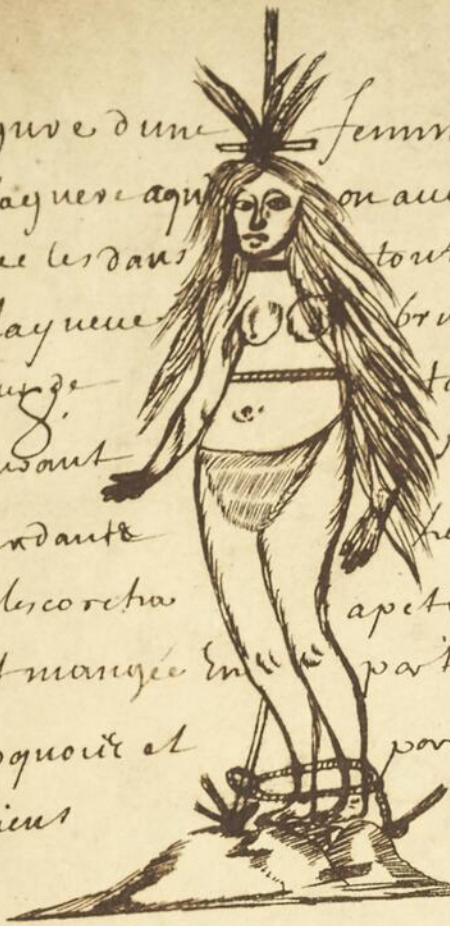 gure dune femm
laguere aqui on aue
ee les dans tout
layueue bru
urgde to
ndant
endante
lescorcha apeti
t mangée En part
oquois et par
iens